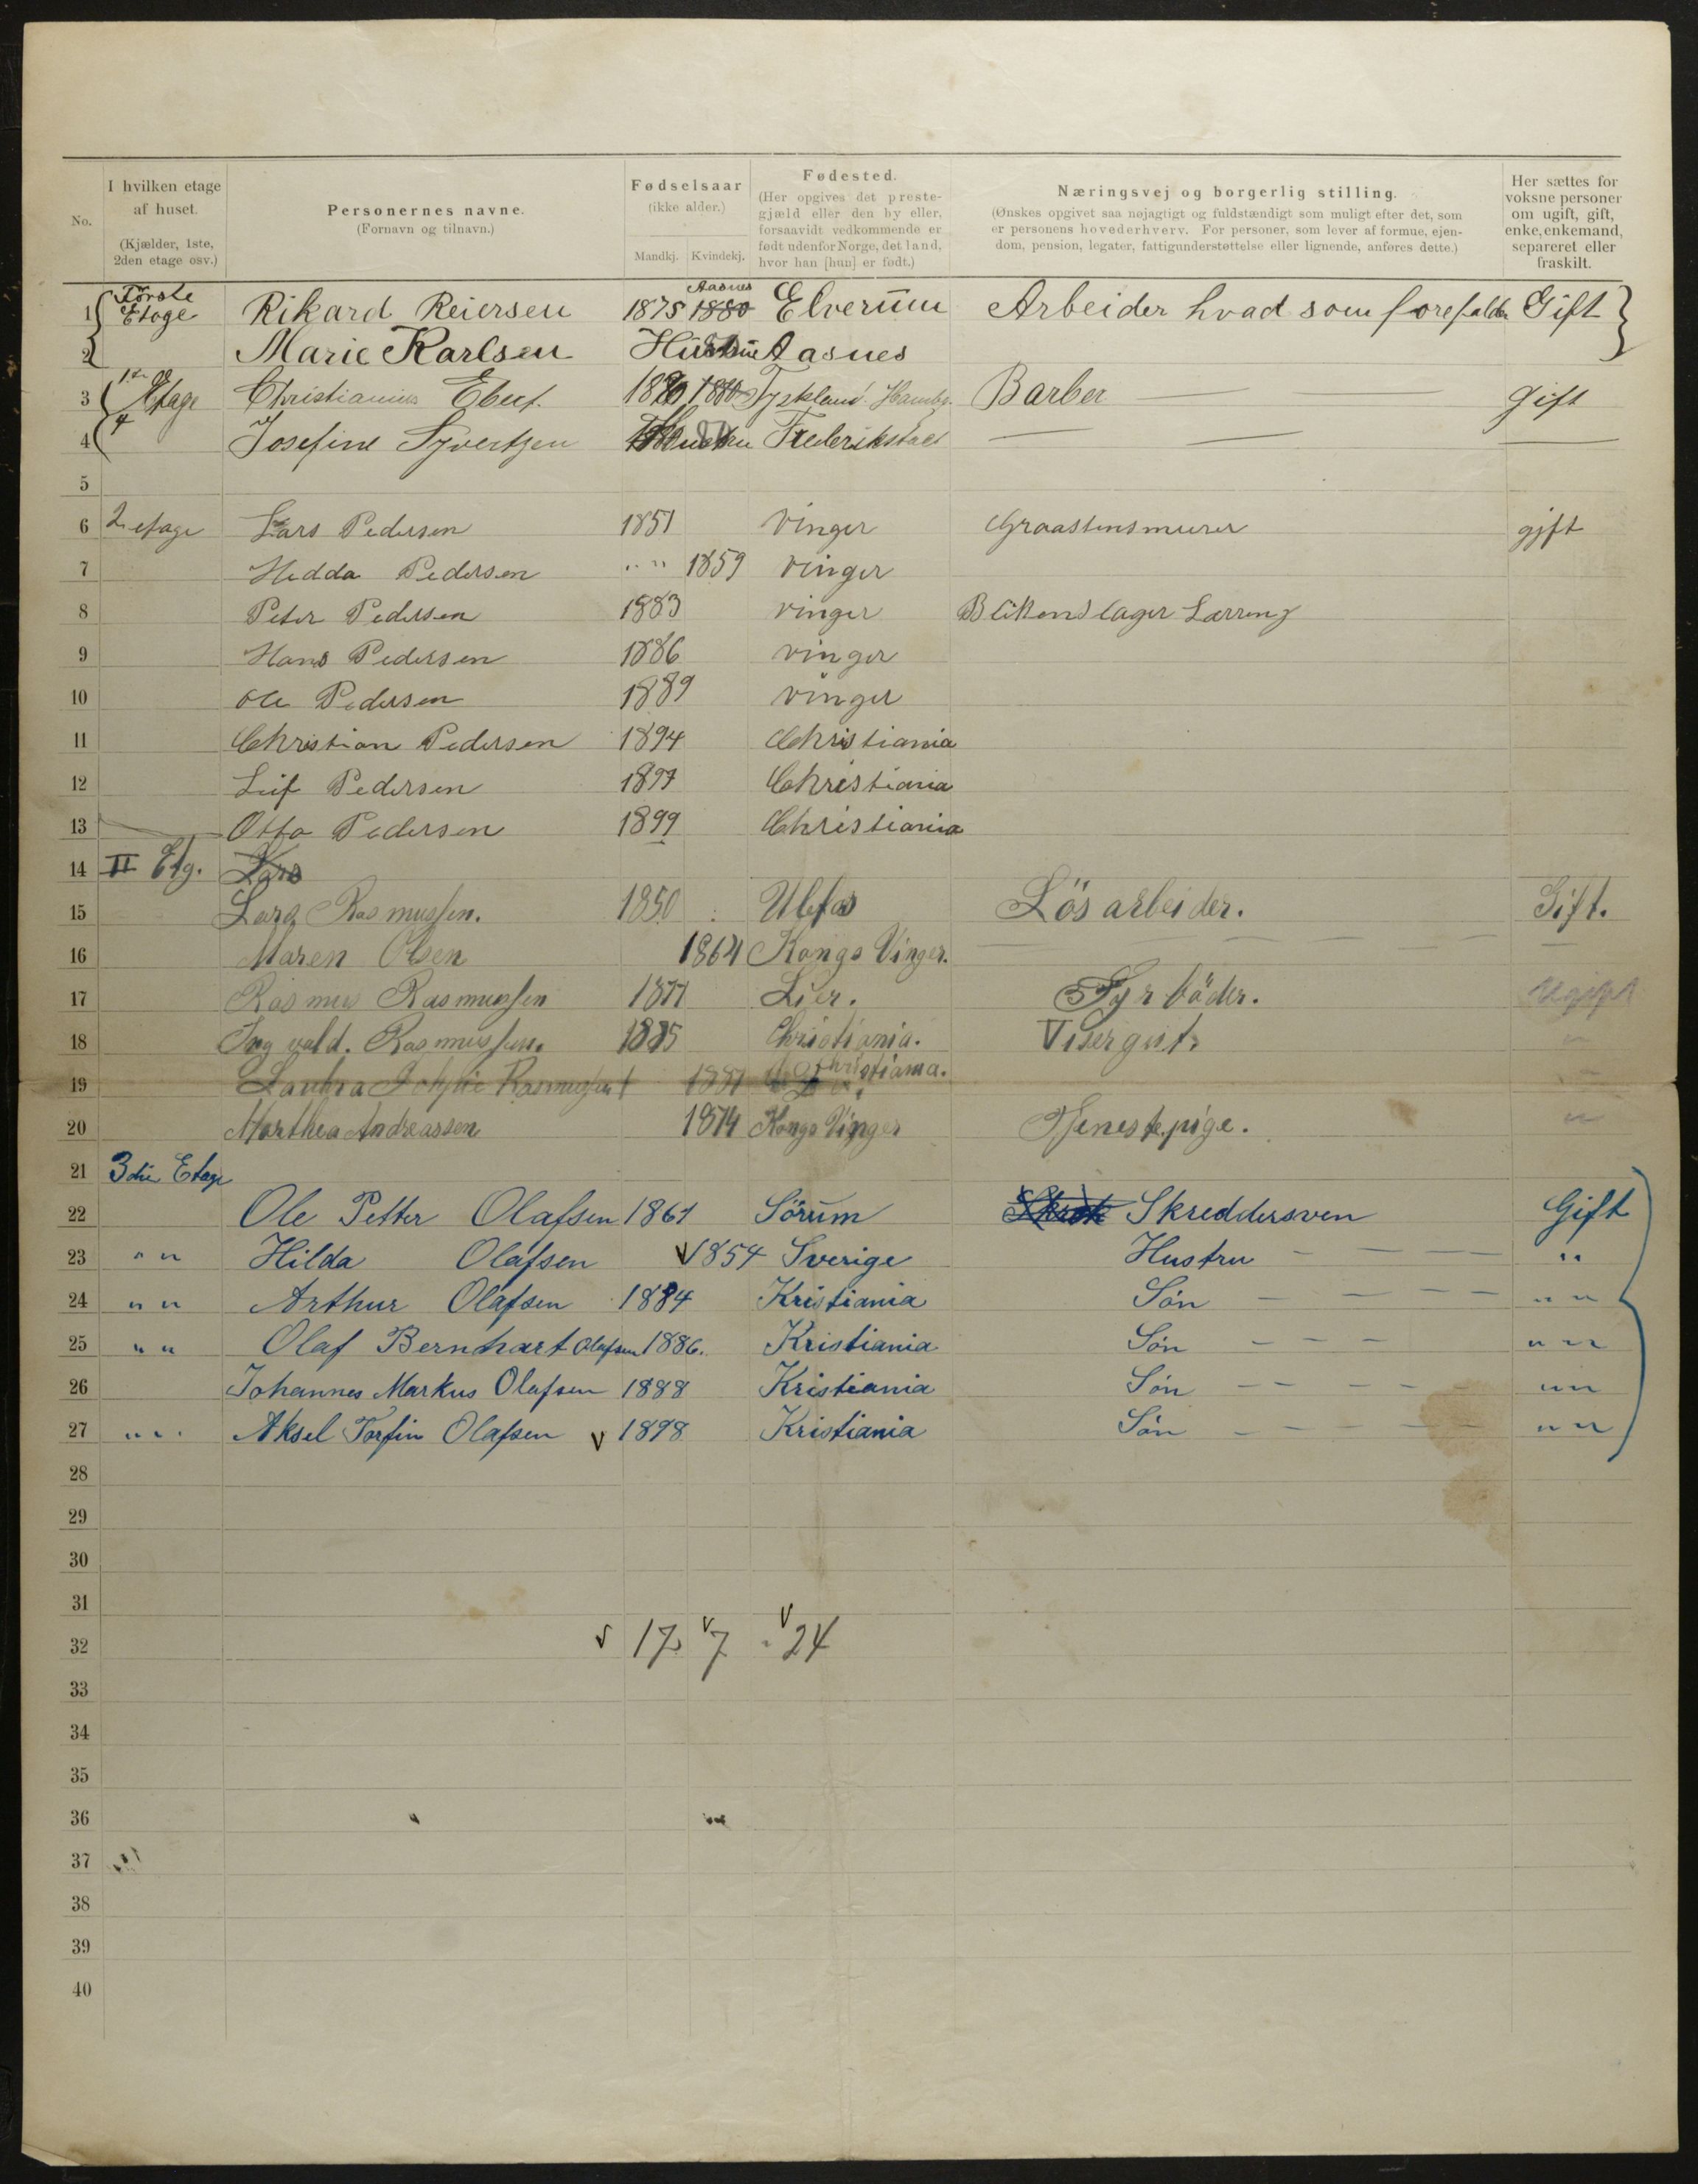 No.
I hvilken etage af huset. (Kjælder, 1ste, 2den etage osv.)
Personernes navne. (Fornavn og tilnavn.)
Fødselsaar (ikke alder.) Mandkj. Kvindekj.
Fødested. (Her opgives det prestegjæld eller den by eller, forsaavidt vedkommende er født udenfor Norge, det land, hvor han [hun] er født.)
Næringsvej og borgerlig stilling. (Ønskes opgivet saa nøjagtigt og fuldstændigt som muligt efter det, som er personens hovederhverv. For personer, som lever af formue, ejendom, pension, legater, fattigunderstøttelse eller lignende, anføres dette.)
Her sættes for voksne personer om ugift, gift, enke, enkemand, separeret eller fraskilt.
1 Første Etage Rikard Reiersen 1875 1880 Aasnes Elverum Arbeider hvad som forefalder Gift
2 Marie Karlsen Hustru Aasnes
3 1ste Etage Christianius Ebert. 1880 Tyskland Hambg. Barber — — gift
4 Josefine Syvertsen Hustru Frederikstad — — —
5
6 2 etage Lars Pedersen 1851 Vinger Graastensmurer gift
7 Hedda Pedersen " " 1859 vinger
8 Peter Pedersen 1883 vinger Blikenslager Lærreng
9 Hans Pedersen 1886 vinger
10 Ole Pedersen 1889 vinger
11 Christian Pedersen 1894 Christiania
12 Leif Pedersen 1897 Christiania
13 Otto Pedersen 1899 Christiania
14 II Etg. Lars
15 Lars Rasmussen. 1850 Ulefos Lös arbeider. Gift.
16 Maren Olsen 1864 Kongs Vinger. — — — —
17 Rasmus Rasmussen 1877 Lier. Fyrböder. Ugift
18 Ingvald. Rasmussen. 1885 Christiania. Visergut. "
19 Rasmussen 1887 Christiania.
20 Marthea Andreassen 1874 Kongs Vinger Tjenestepige. "
21 3die Etage
22 Ole Petter Olafsen 1861 Sörum Skreddersven Gift
23 " " Hilda Olafsen 1854 Sverige Hustru - - - - "
24 " " Arthur Olafsen 1884 Kristiania Sön - - - - " "
25 " " Olaf Bernhart Olafsen 1886. Kristiania Sön - - - " "
26 Johannes Markus Olafsen 1888 Kristiania Sön - - - - " "
27 " " Aksel Torfin Olafsen 1898 Kristiania Sön - - - - " "
28
29
30
31
32 17 7 24
33
34
35
36
37
38
39
40